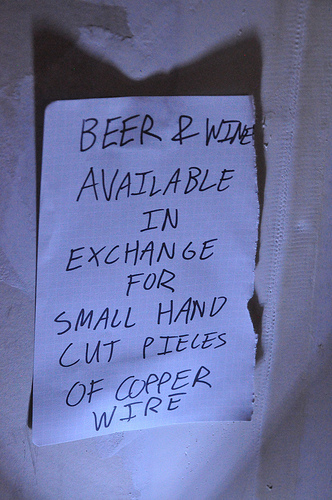 BEER & WINE
AVAILABLE
IN
EXCHANGE
FOR
SMALL HAND
CUT PIECES
OF COPPER
WIRE